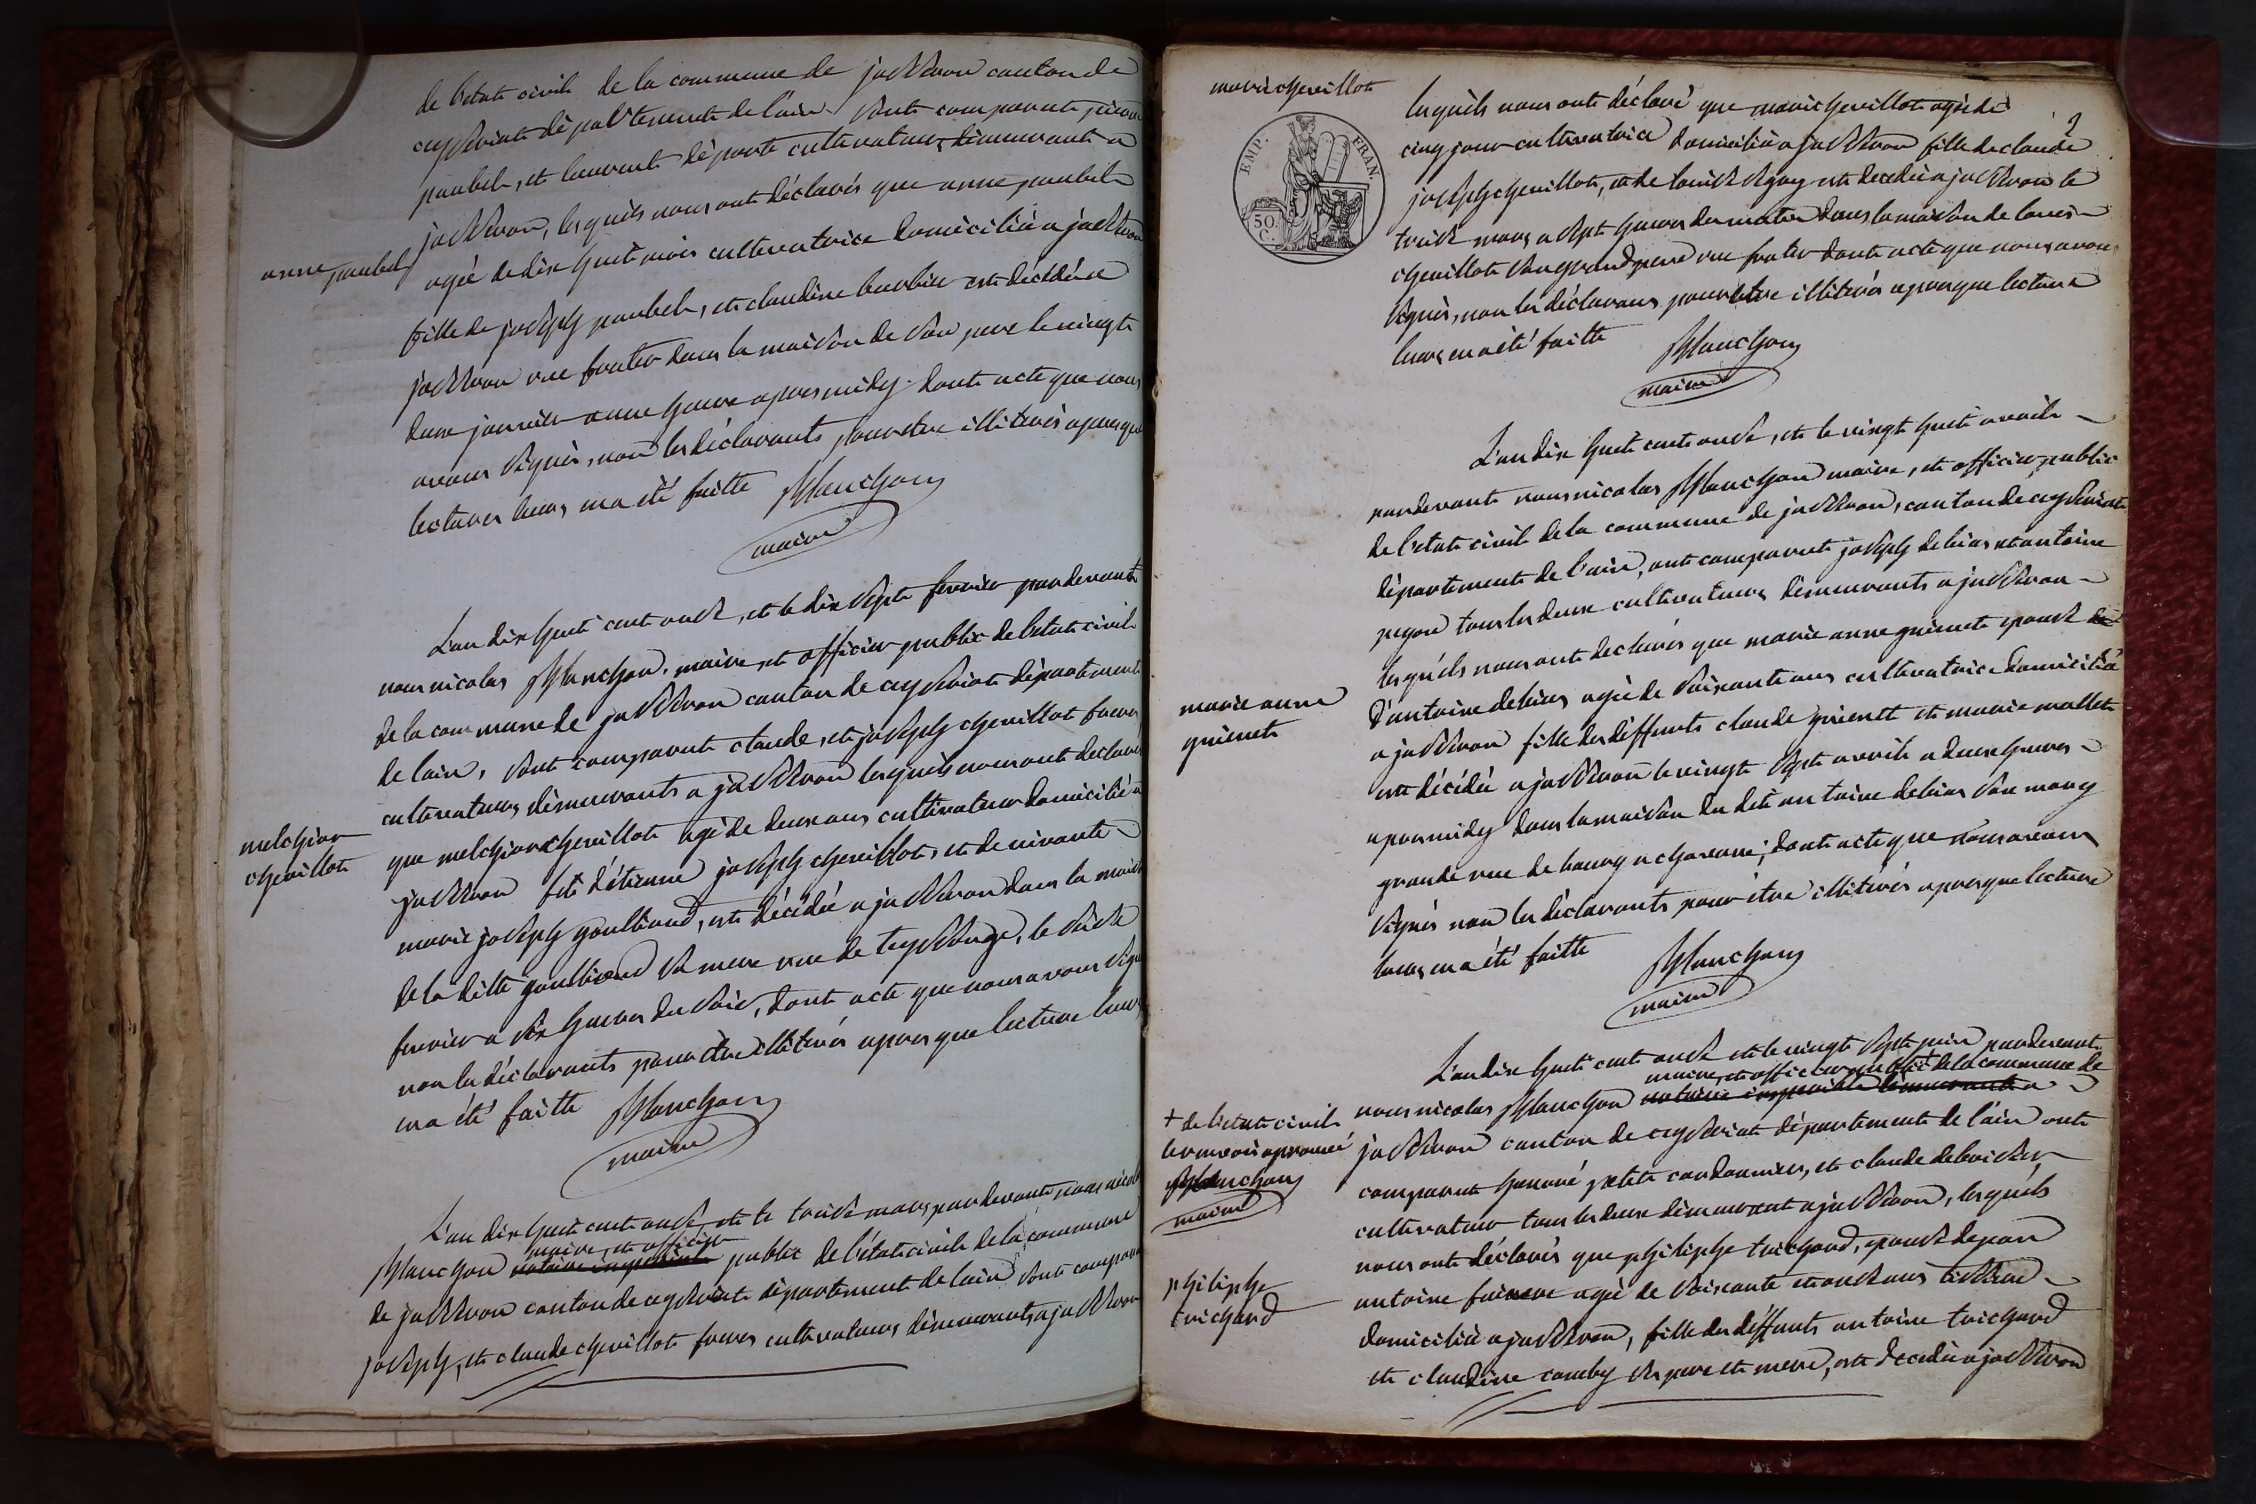 de l'état civil de la commune de jasseron canton de
ceyseriat dépaltement de l'ain. sont comparut pierre
paubel, et laurent déporte cultivateurs, démeurant a
jasseron, lesquels nous ont déclarés que anne paubel
anne paubel
agée de dix huit mois cultivatrice domiciliée a jasseron
fille de joseph paubel, et claudine barbier est décédée a
jasseron rue frater dans la maison de son pere le vingt
deux janvier a une heure apres midy. dont acte que nous
avons signés, non les déclarants pour etre illitérés apres que
lectures leurs en a été faitte Planchon
maire
L'an dix huit cent onze, et le dix sept fevrier pardevant
nous nicolas Planchon, maire, et officier public de l'etat civil
de la commune de jasseron canton de ceyseriat département
de lain, sont comparut claude, et joseph chevillot freres
cultivateurs démeurants a jasseron lesquels nous ont declarés
melchior
chevillot
que melchior chevillot agé de deux ans cultivateur domicilié a
jasseron fils d'étienne joseph chevillot, et de vivante
marie joseph goultiand, est décédé a jasseron dans la maison
de la ditte goultiand sa mere rue de teyssonge, le seize
fevrier a six heures du soir, dont acte que nous avons signé
non les déclarants pour etre illitérés apres que lecture leurs
en a été faitte Planchon
maire
L'an dix huit cent onze, et le treize mars pardevant nous nicolas
maire, et officier
Planchon notaire imperiale public de l'état civil de la commune
de jasseron canton de ceyseriat département de lain sont comparut
joseph, et claude chevillot freres cultivateurs démeurants a jasseron
marie chevillot
lesquels nous ont déclaré que marie chevillot agée de
2
EMP. FRAN.
50.
C.
cinq jour cultivatrice domiciliée a jasseron fille de claude
joseph chevillot, et de louise est decedée a jasseron le
treize mars a sept heures du matin dans la maison de louis
chevillot son grand pere rue frater dont acte que nous avons
signés, non les déclarans pour etre illitérés apres que lecture
leurs en a été faitte Planchon
maire
L'an dix huit cent onze, et le vingt huit avril
pardevant nous nicolas Planchon maire, et officier public
de l'etat civil de la commune de jasseron, canton de ceyseriat
département de l'ain, ont comparut joseph debias et antoine
pegon tous les deux cultivateurs démeurants a jasseron
lesquels nous ont declarés que marie anne grienet epouse de
marie anne
grienet
d'antoine debias agée de soixante ans cultivatrice domiciliée
a jasseron fille des deffunts claude grienet et marie mallet
est décédée a jasseron le vingt sept avril a deux heures
apres midy dans la maison du dit antoine debias son mary
grande rue de bourg a charonne; dont acte que nous avons
signés non les déclarants pour être illitérés apres que lecture
leurs en a été faitte Planchon
maire
L'an dix huit cent onze et le vingt sept juin pardevant
maire, et officier public + de la commune de
nous nicolas Planchon notaire imperiale demeurant a
+ de l'etat civil
le renvoi aprouvé
Planchon
maire
jasseron canton de ceyseriat département de l'ain ont
comparut honoré petit cordonnier, et claude deboisser
cultivateur tous les deux démeurant a jasseron, lesquels
nous ont déclarés que philiphe trichard, epouse de pan
philiphe
trichard
antoine agé de soixante et onze ans tisseur
domicilié a jasseron, fille des déffunts antoine trichard
et claudine comby ses pere et mere, est decedée a jasseron